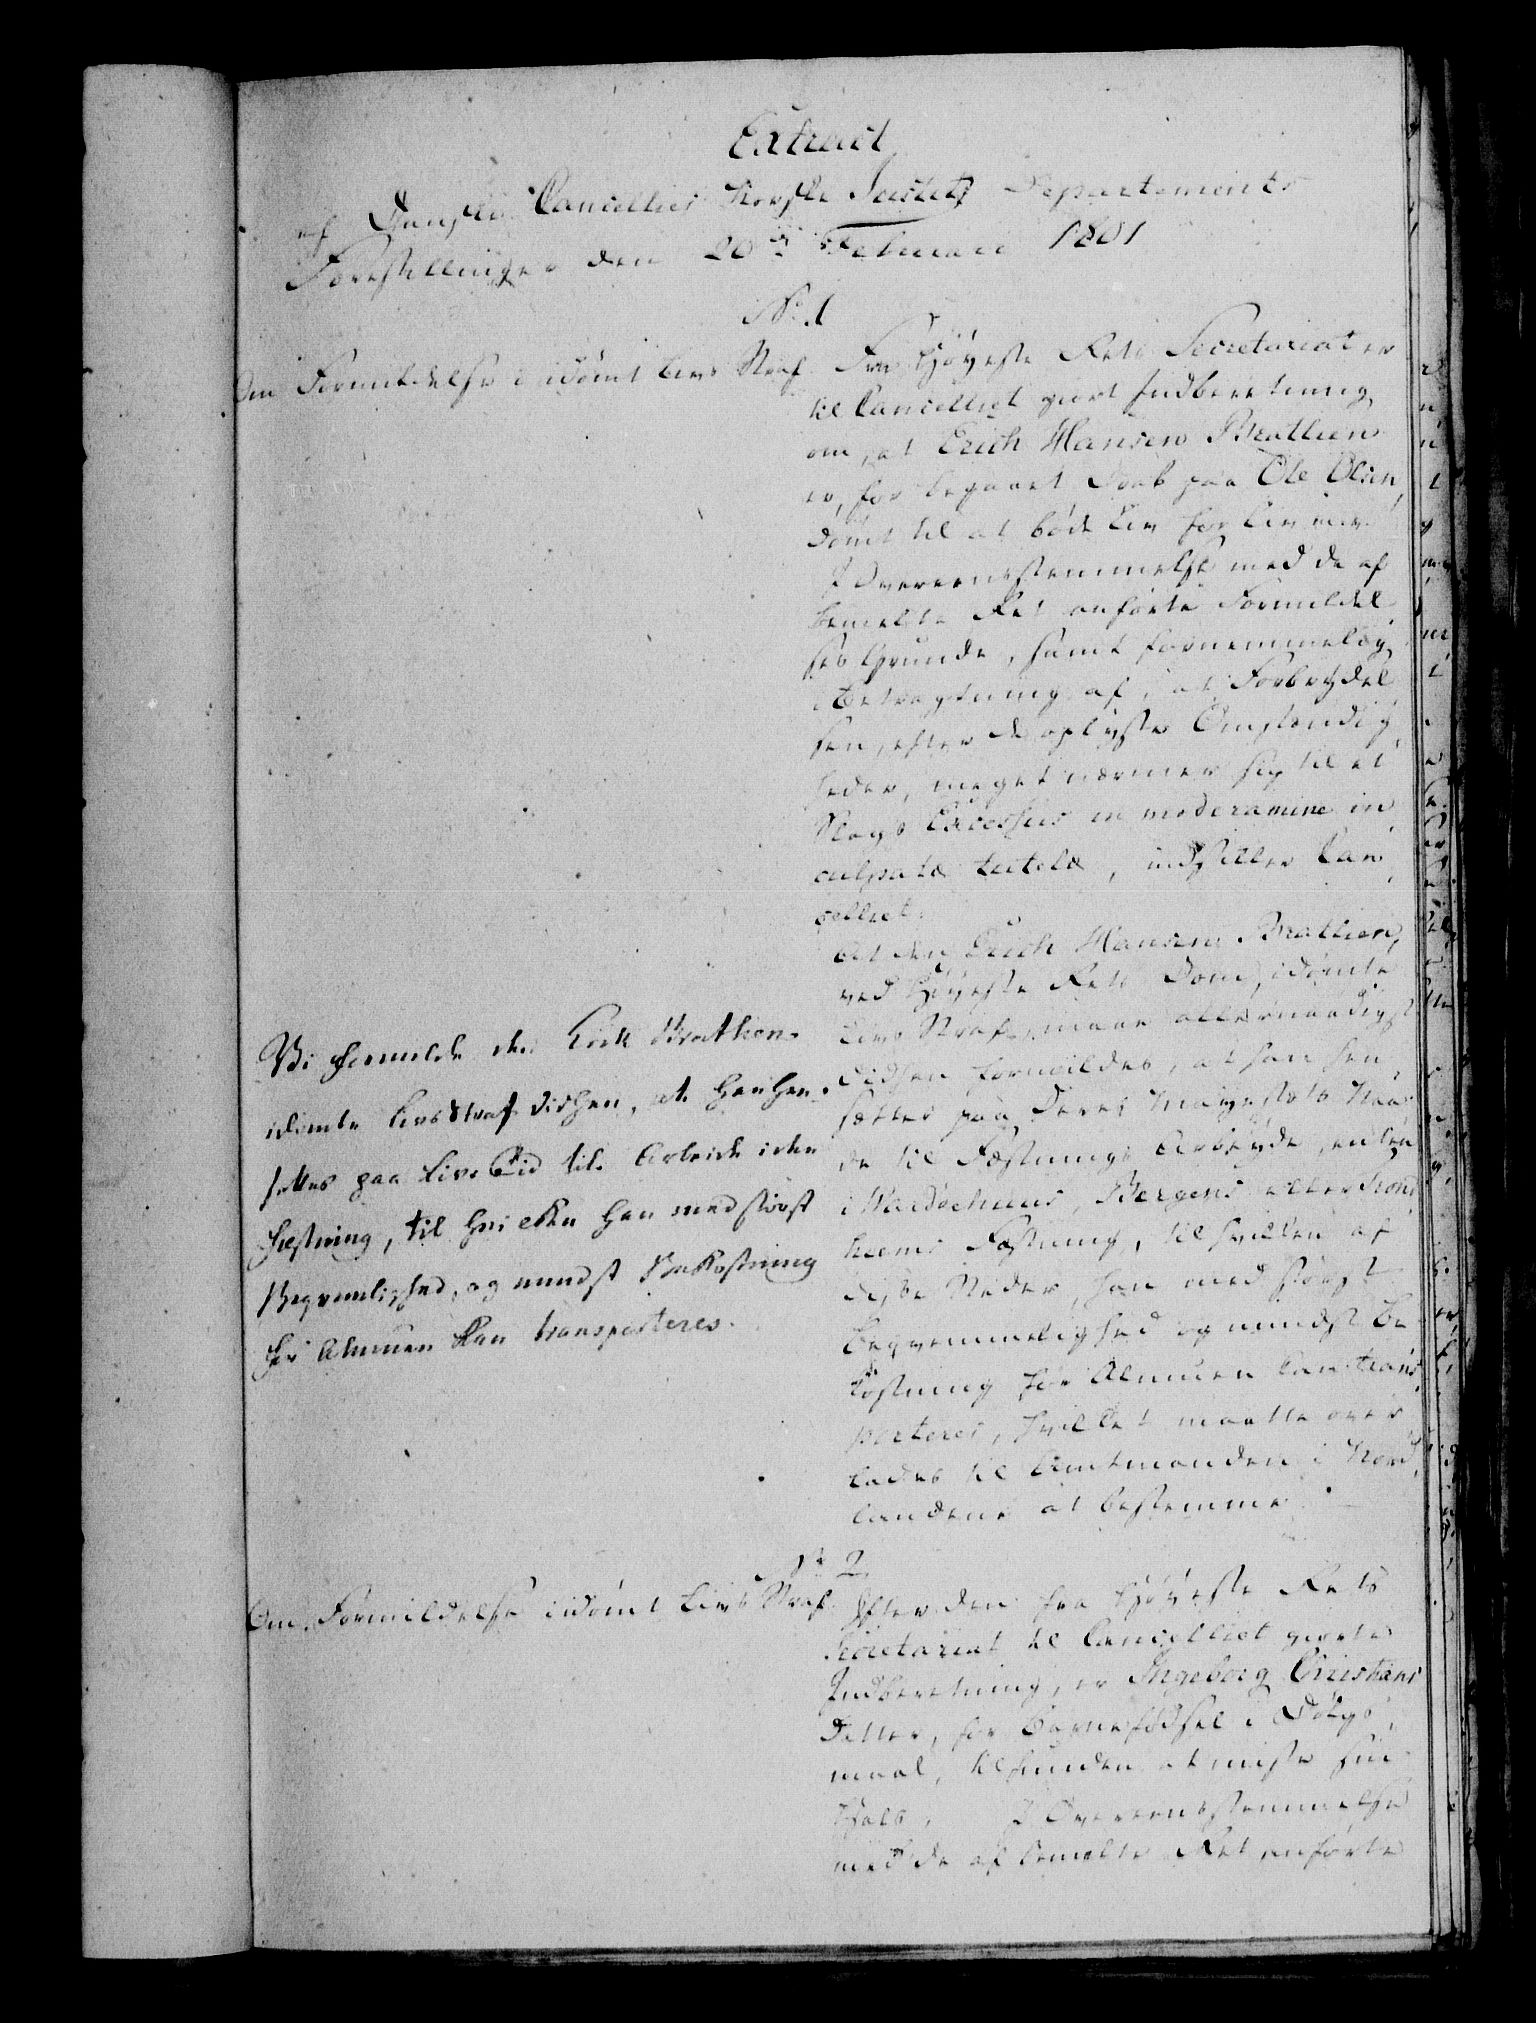 Extract
af Danske Cancellies Norske Justits Departements
Forestillinger den 20de Februarii 1801
No. 1
Om Formildelse i idömt Livs Straf.
Fra Höyeste Rets Secretariat er
til Cancelliet giort Indberetning
om, at Erich Hansen Brattlien
er, for begaaet Drab paa Ole Olsen,
dömt til at böde Liv for Liv.
I Overeensstemmelse med de af
bemeldte Ret anförte Formildel,
ses Grunde, samt fornemmelig
i Betragtning af, at Forbrydel,
sen, efter de oplyste Omstændig,
heder, meget nærmer sig til et
Slags Excessus in moderamine in,
culpatæ tutelæ, indstiller Can,
celliet:
At den Erich Hansen Brattlien,
ved Höyeste Rets Dom, idömte
Livs Straf, maae allernaadigst
didhen formildes, at han hen,
sættes paa Deres Majestæts Naa,
de til Fæstnings Arbeyde, enten
i Wardöehuus, Bergens eller Tron,
hiems Fæstning, til hvilken af
disse Steder, han med störst
Beqvemmelighed og mindst Be,
kostning for Almuen kan trans,
porteres, hvilket maatte over,
lades til Amtmanden i Nord,
landene at bestemme.
Vi formilde den Erik Brathen
idömte Livs Straf didhen, at han hen,
settes paa Livs Tid til Arbeide i den
Fæstning, til hvilken han med störst
Beqvemlighed, og mindst Bekostning
for Almuen kan transporteres.
No 2.
Om Formildelse i idömt Livs Straf.
Efter den fra Höyeste Rets
Secretariat til Cancelliet giorte
Indberetning, er Ingeborg Christians
Datter, for Barnefödsel i Dölgs,
maal, tilfunden at miste sin
Hals. I Overeensstemmelse
med de af bemeldte Ret anförte